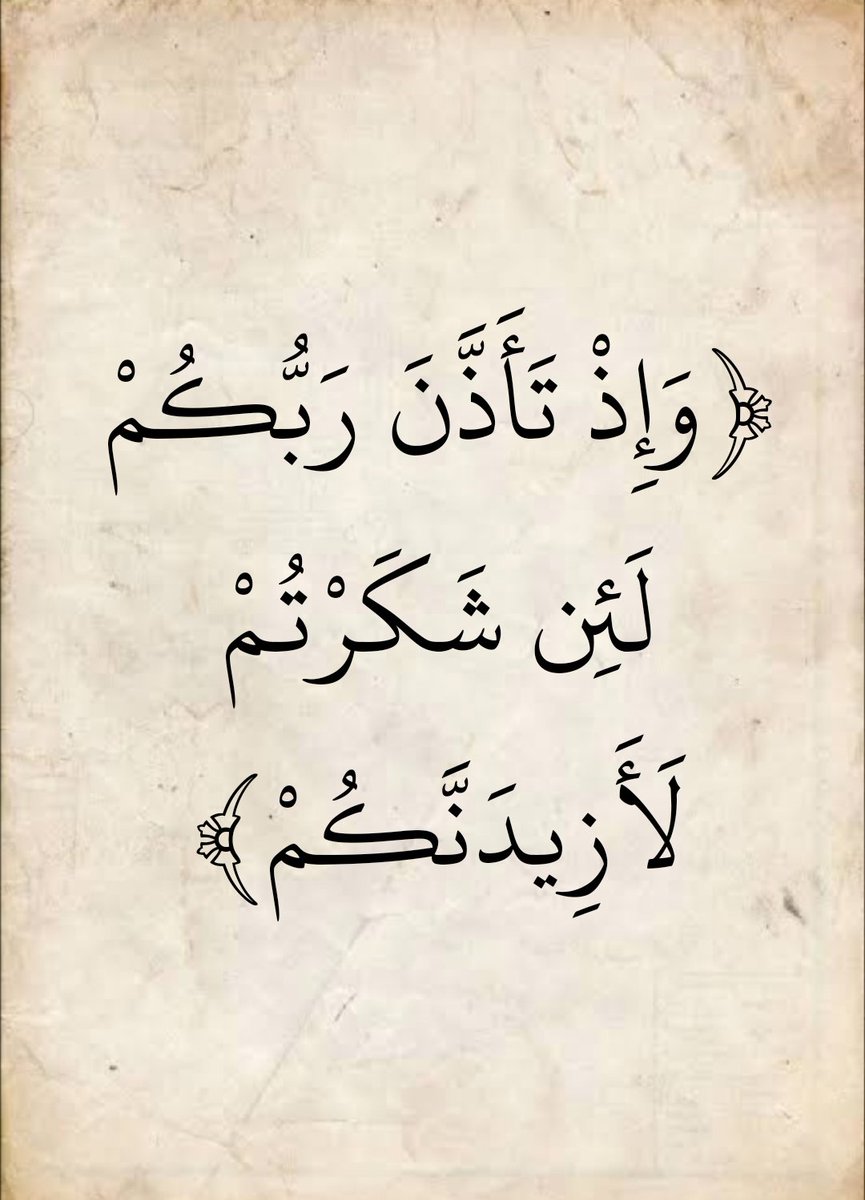 ﴿وَإِذْ تَأَذَّنَ رَبُّكُمْ
لَئِن شَكَرْتُمْ
لَأَزِيدَنَّكُمْ﴾